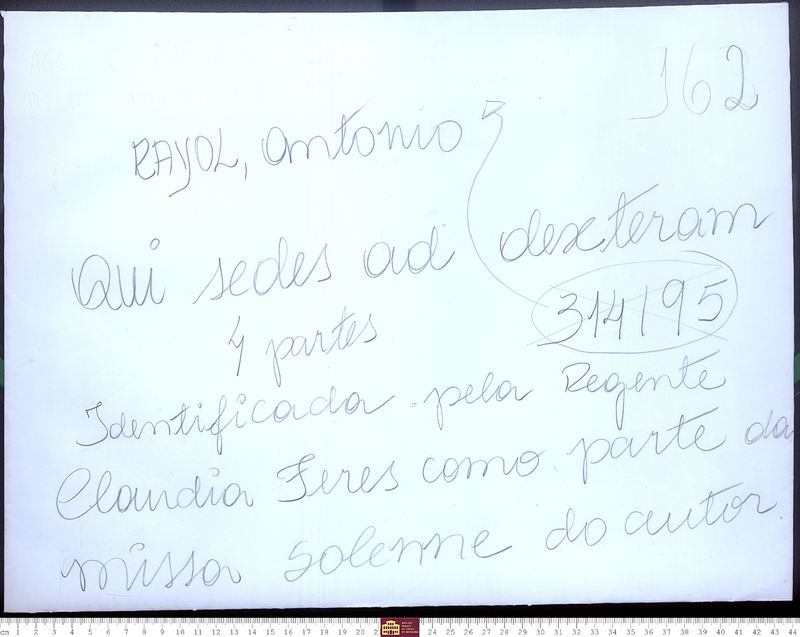 162
RAYOL, Antonio
Qui sedes ad dexteram
314/95
4 partes
Identificada pela Regente
Claudia Feres como parte da
missa Solenne do autor.